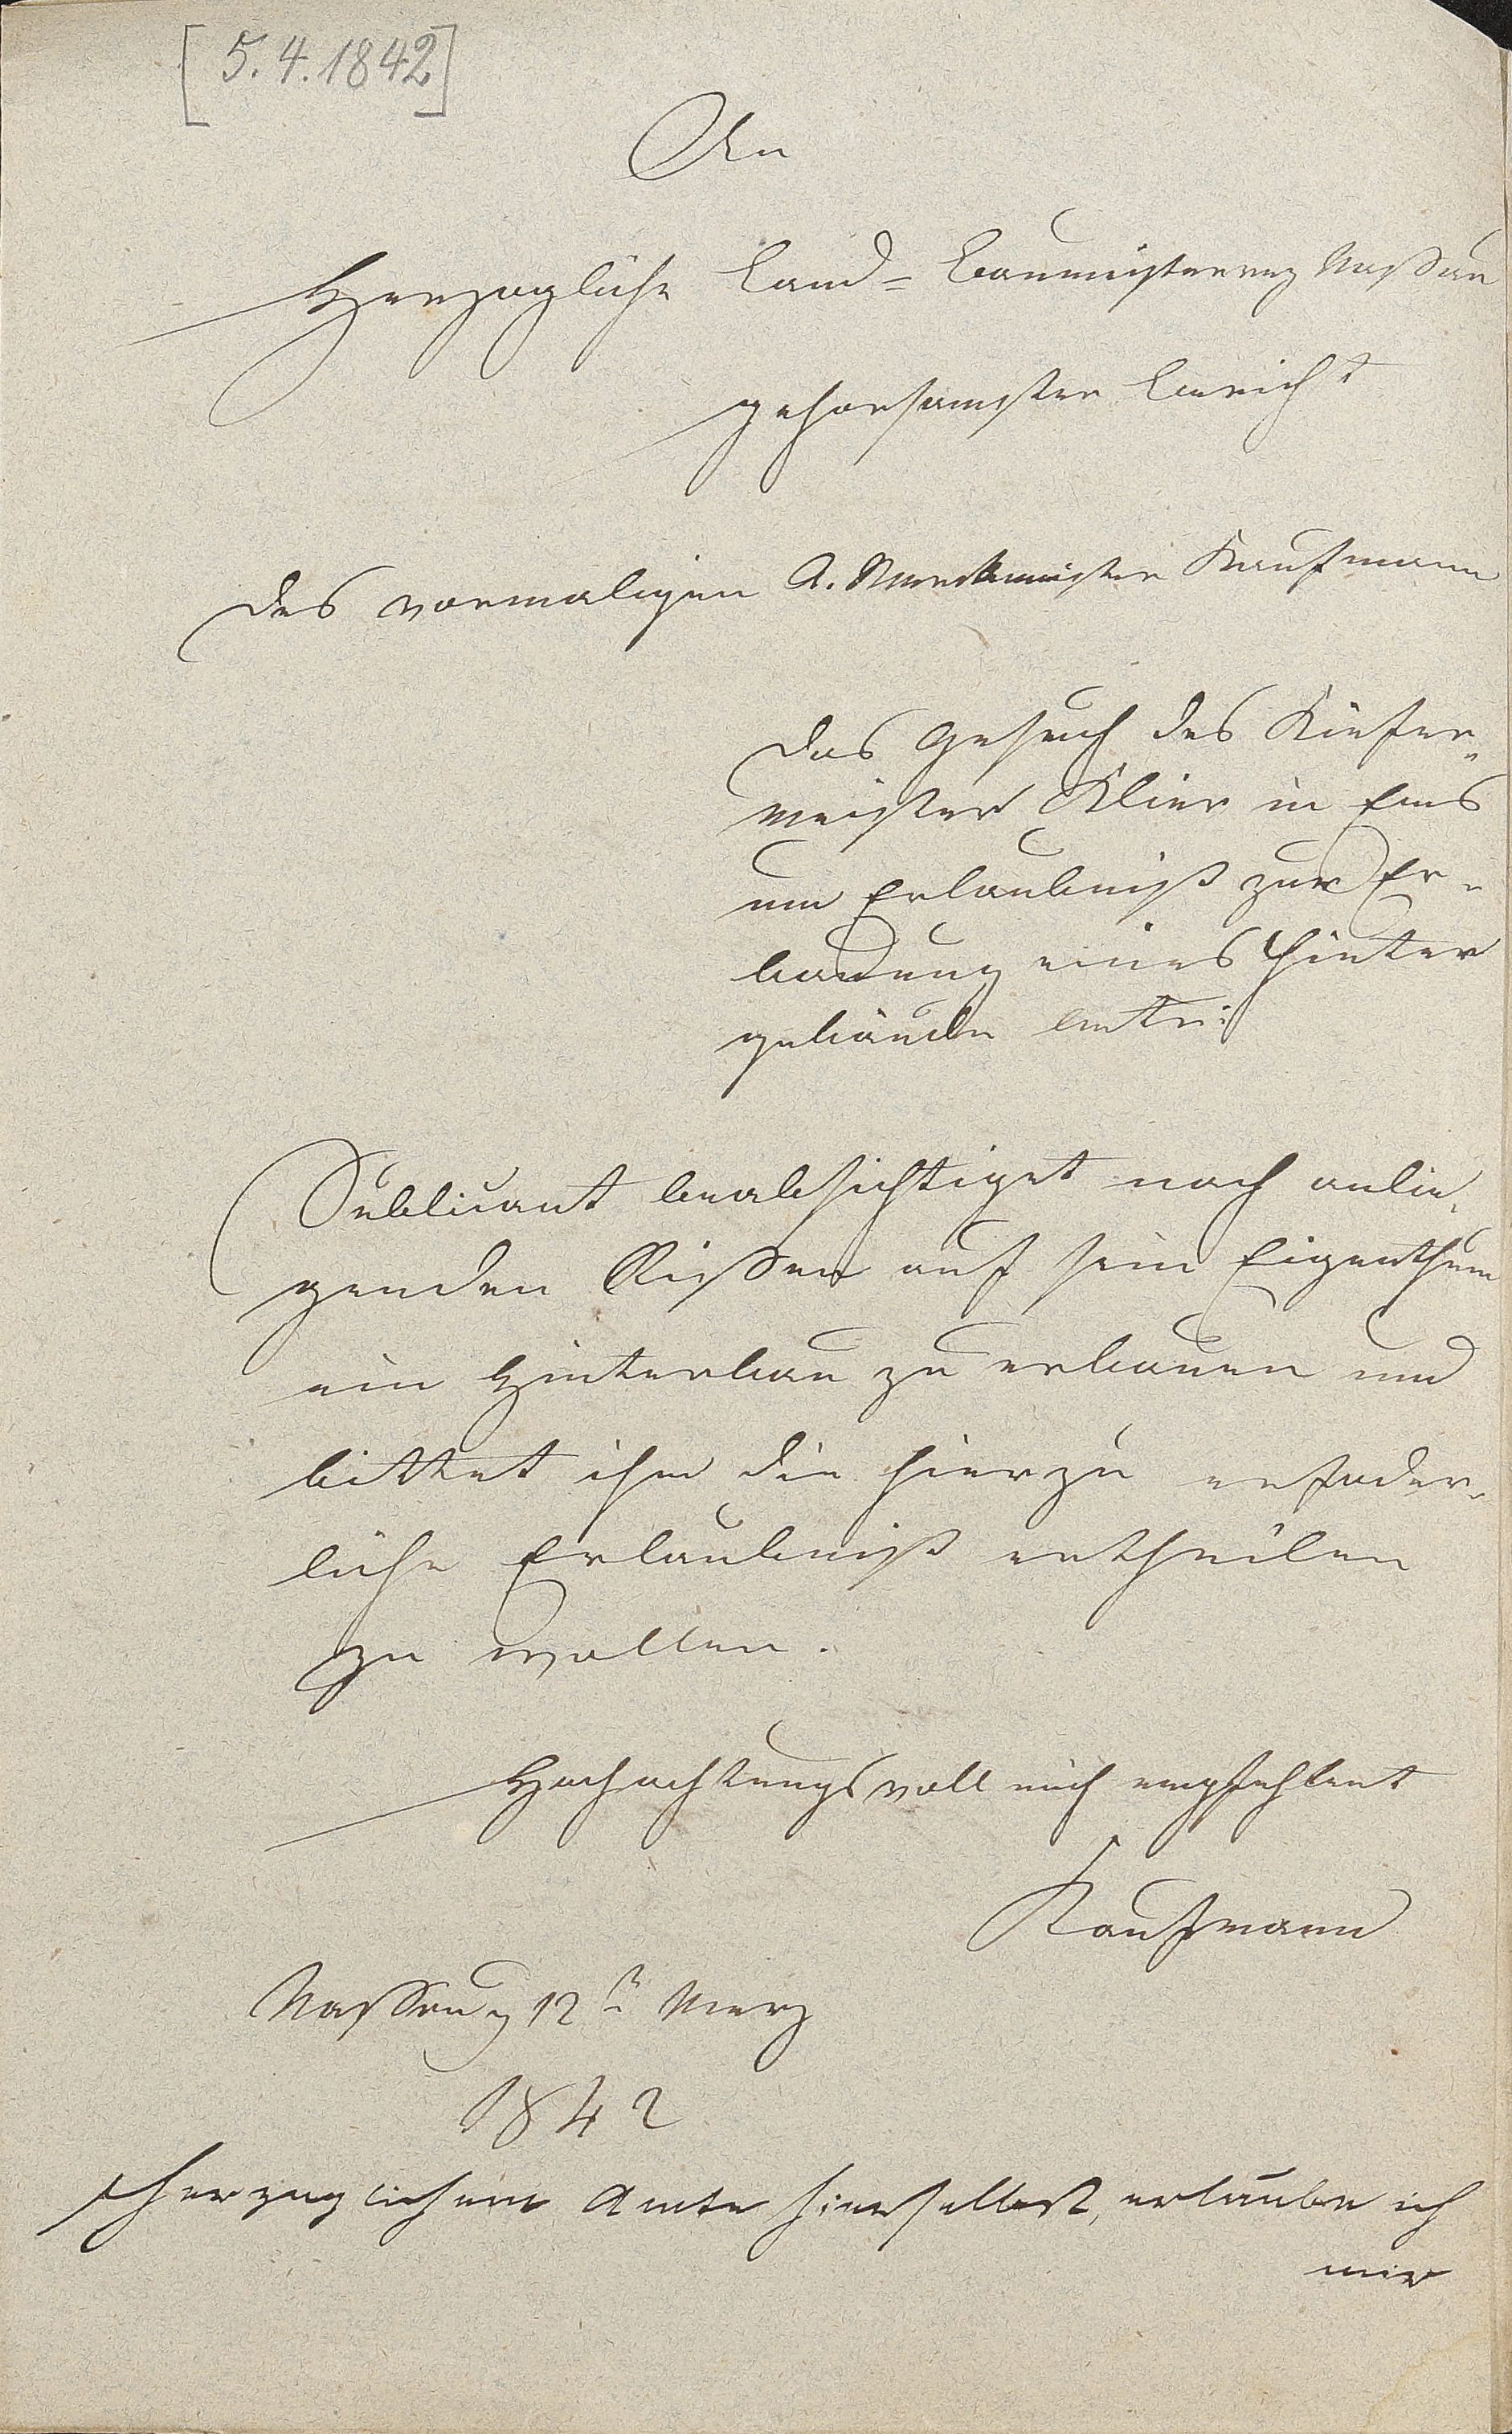 [5.4.1842]
An
Herzogliche Land=Baumeisterey Nassau
gehorsamster Bericht
des vormaligen A. Werkmeister Kaufmann
das Gesuch des Kiefer-
meister Klier in Ems
um Erlaubniß zur Er-
bauung eines Hinter
gebäude betr:
Sublicant beabsichtiget nach anlie-
genden Rissen auf sein Eigenthum
ein Hinterbau zu erbauen und
bittet ihm die hierzu erfoder-
liche Erlaubniß ertheilen
zu wollen.
Hochachtungsvoll mich empfehlent
Kaufmann
Nassau 12t Merz
1842
Herzoglichem Amte hierselbst, erlaube ich
mir